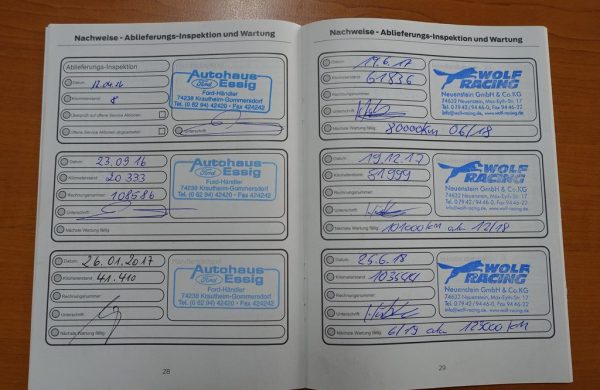 Nachweise - Ablieferungs-Inspektion und Wartung
Ablieferungs-Inspektion
Datum:
Kilometerstand: 8
Überprüft auf offene Service Aktionen:
Offene Service Aktionen abgearbeitet:
Unterschrift:
Autohaus
Ford Essig
Ford-Händler
74238 Krautheim-Gommersdorf
Tel. (0 62 94) 42420 - Fax 424242
Datum: 23.09.16
Kilometerstand: 20 333
Rechnungsnummer: 108586
Unterschrift:
Nächste Wartung fällig:
Autohaus
Ford Essig
Ford-Händler
74238 Krautheim-Gommersdorf
Tel. (0 62 94) 42420 - Fax 424242
Datum: 26.01.2017
Kilometerstand: 41.410
Rechnungsnummer:
Unterschrift:
Nächste Wartung fällig:
Autohaus
Ford Essig
Ford-Händler
74238 Krautheim-Gommersdorf
Tel. (0 62 94) 42420 - Fax 424242
28
Nachweise - Ablieferungs-Inspektion und Wartung
Datum: 19.6.17
Kilometerstand: 61836
Rechnungsnummer:
Unterschrift:
Nächste Wartung fällig: 80000km 06/18
WOLF
RACING
Neuenstein GmbH & Co.KG
74632 Neuenstein, Max-Eyth-Str. 17
Tel. 0 79 42 / 94 46-0, Fax 94 46-22
info@wolf-racing.de, www.wolf-racing.de
Datum: 19.12.17
Kilometerstand: 81999
Rechnungsnummer:
Unterschrift:
Nächste Wartung fällig: 101000km o. 12/18
WOLF
RACING
Neuenstein GmbH & Co.KG
74632 Neuenstein, Max-Eyth-Str. 17
Tel. 0 79 42 / 94 46-0, Fax 94 46-22
info@wolf-racing.de, www.wolf-racing.de
Datum: 25.6.18
Kilometerstand:
Rechnungsnummer:
Unterschrift:
Nächste Wartung fällig: 6/19 o. 123000 km
WOLF
RACING
Neuenstein GmbH & Co.KG
74632 Neuenstein, Max-Eyth-Str. 17
Tel. 0 79 42 / 94 46-0, Fax 94 46-22
info@wolf-racing.de, www.wolf-racing.de
29